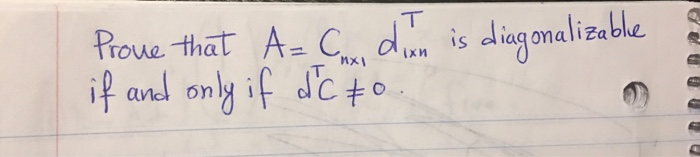 Prove that A = C_{n×1} d^T_{1×n} is diagonalizable
if and only if d^T C ≠ 0.